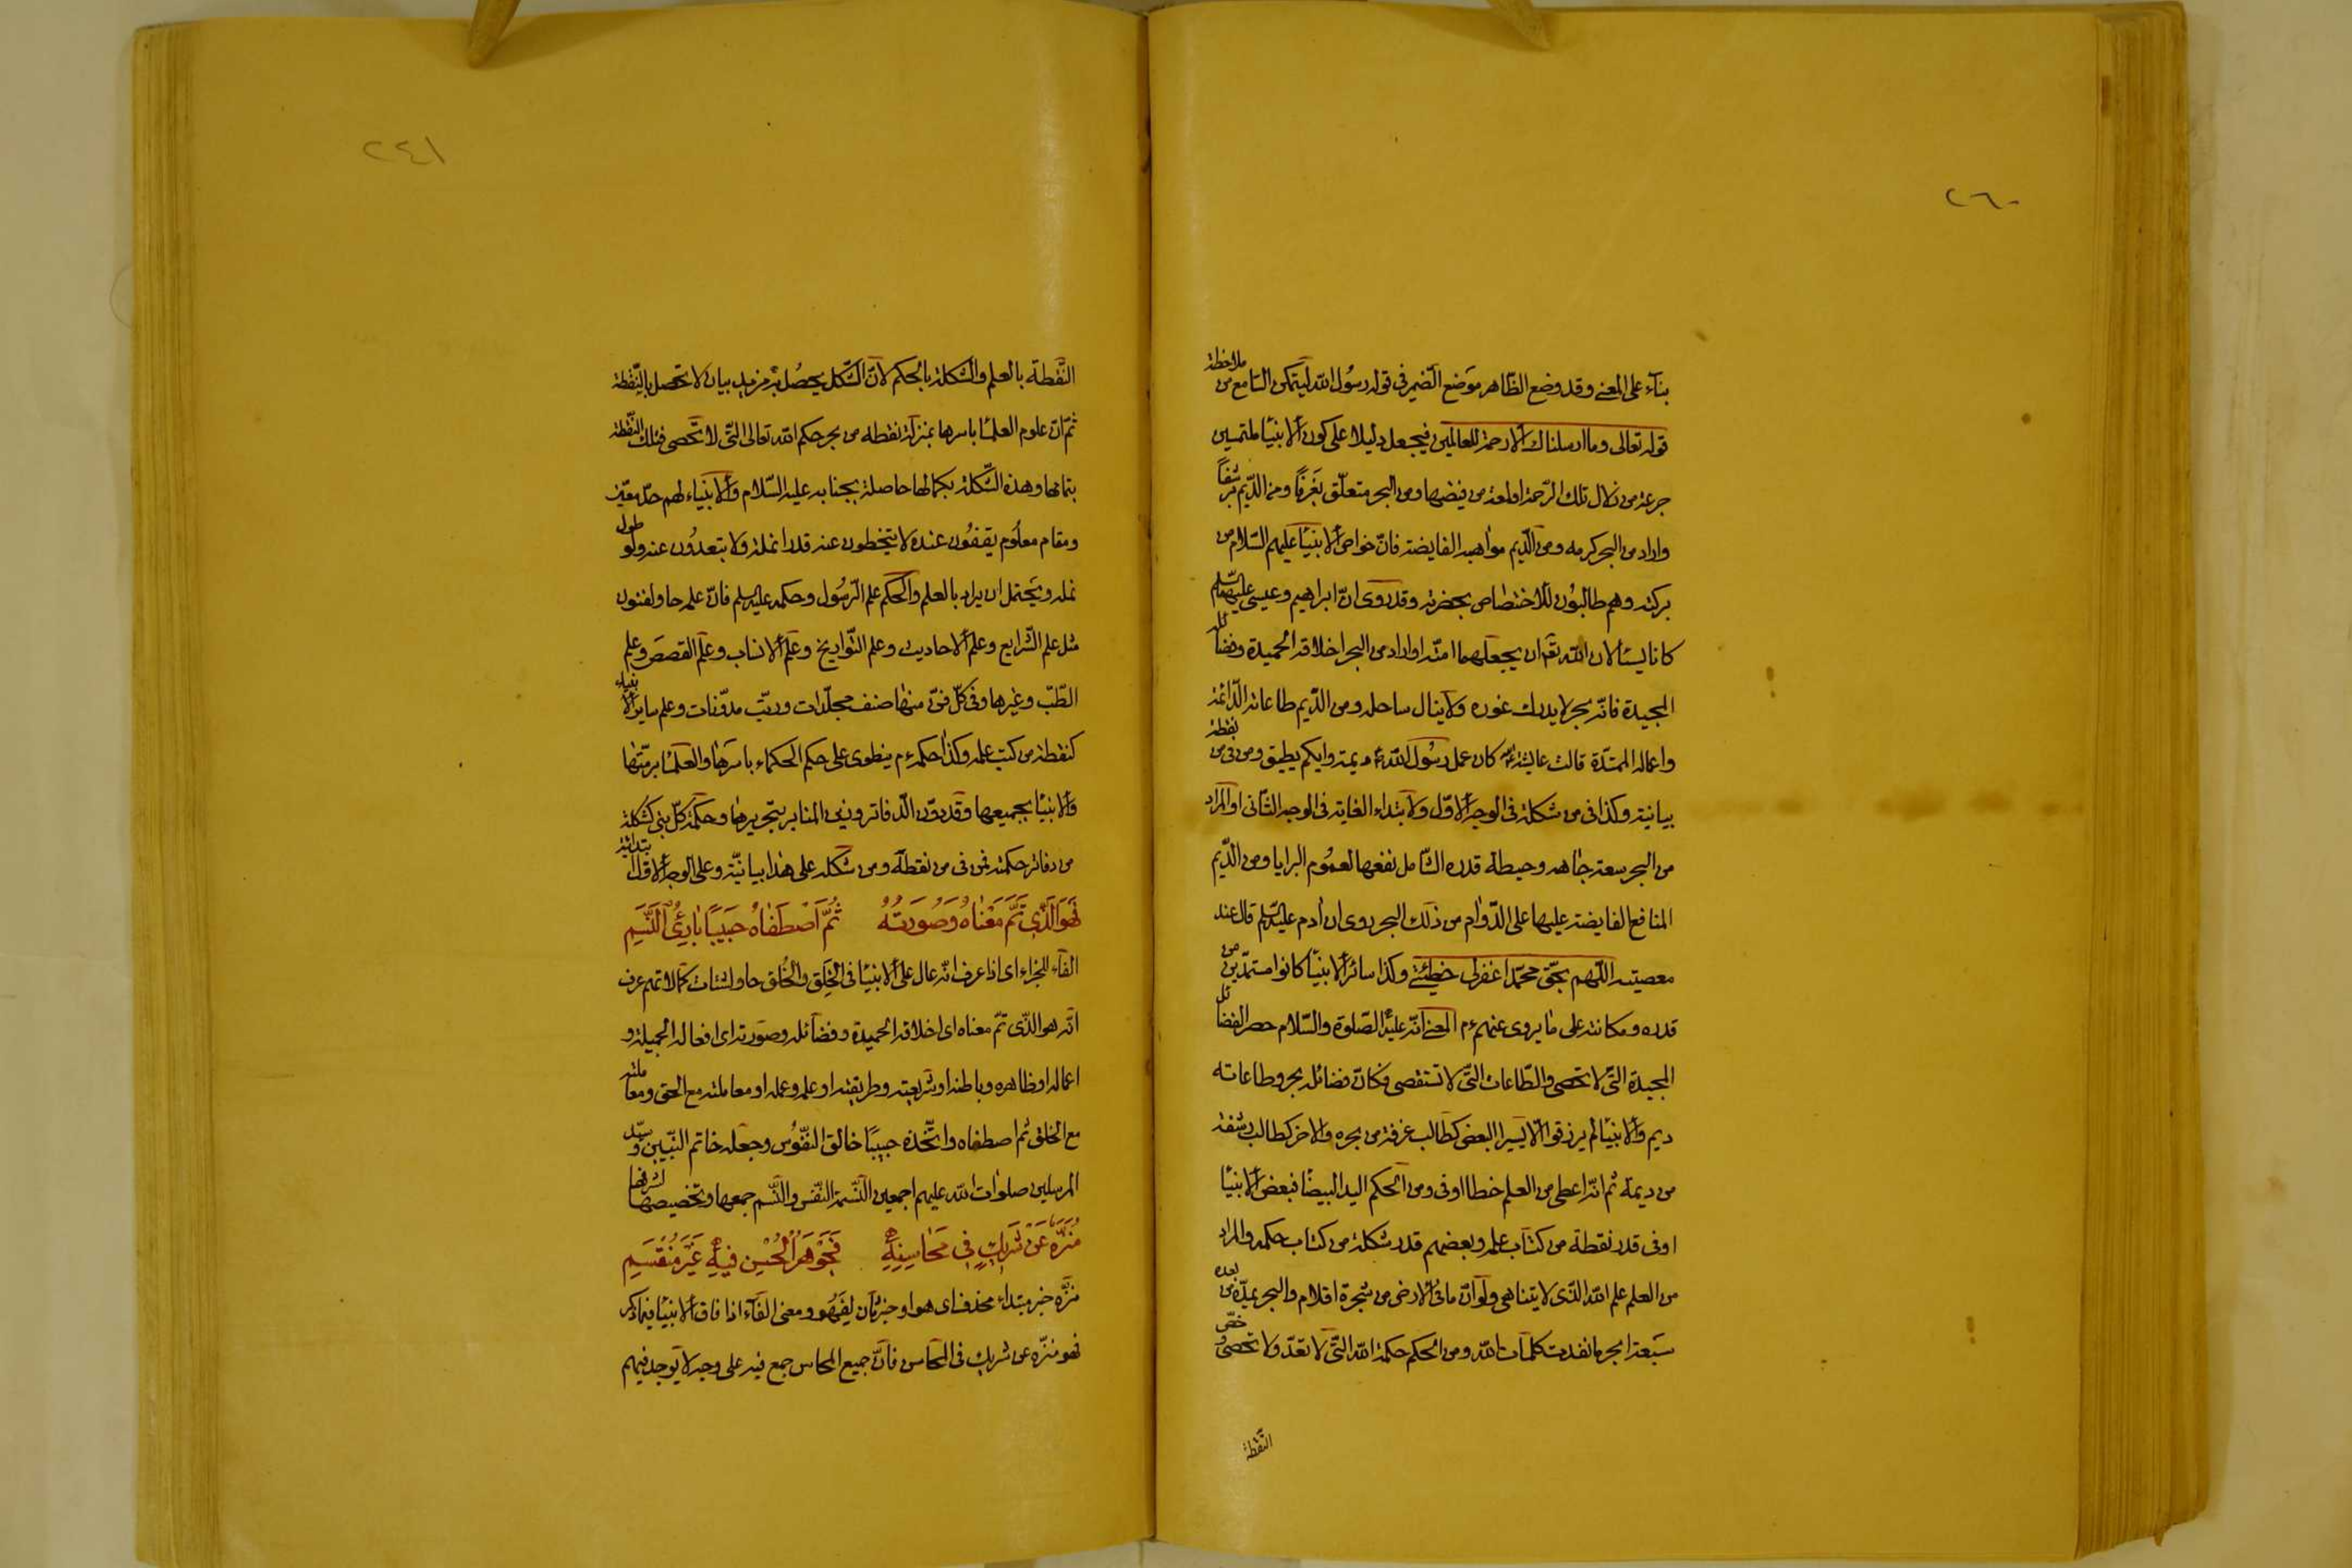 ٢٦٠
بناء على المعنى وقد وضع الظاهر موضع الضمير فى قوله رسول الله ليتمكن السامع من ملاحظة
قوله تعالى وما ارسلناك الا رحمة للعالمين فيجعل دليلا على كون الانبياء ملتمسين
جرعة من زلال تلك الرحمة اولمعة من فيضها ومن البحر متعلق بغرفا ومن الديم برشفا
واراد من البحر كرمه ومن الديم مواهبه الفايضة فانّ خواص الانبياء عليهم السلام من
بركته وهم طالبون للاختصاص بحضرته وقد روى انّ ابراهيم وعيسى عليهما السلم
كانا يسئلان الله تعالى ان يجعلهما امته او اراد من البحر اخلاقه الحميدة وفضائله
المجيدة فانّه بحر لا يدرك غوره ولا ينال ساحله ومن الديم طاعاته الدّائمة
واعماله الممتدّة قالت عايشة كان عمل رسول الله ديمة وايكم يطيق ومن فى من نقطة
بيانية وكذا فى من شكلة فى الوجه الاوّل ولابتداء الغاية فى الوجه الثانى او المراد
من البحر سعة جاهه وحيطة قدره الشامل نفعها لعموم البرايا ومن الدّيم
المنافع الفايضة عليها على الدّوام من ذلك البحر روى ان ادم عليه السلم قال عند
معصيته اللهم بحق محمد اغفرلى خطيئتى وكذا سائر الانبياء كانوا مستمدّين من
قدره ومكانته على ما يروى عنهم المعنى انّه عليه الصّلوة والسّلام حصر الفضائل
المجيدة التى لا تحصى والطّاعات التّى لا تستقصى فكانّ فضائله بحر وطاعاته
ديم والانبياء لم يرزقوا الّا يسيرا البعض كطالب غرفة من بحره والاخر كطالب رشفة
من ديمة ثم انّه اعطى من العلم خطا اوفى ومن الحكم اليد البيضا فبعض الانبياء
اوفى قدر نقطة من كتاب علمه وبعضهم قدر شكلة من كتاب حكمه والمراد
من العلم علم الله الّذى لا يتناهى ولو انّ ما فى الارض من شجرة اقلام والبحر يمدّه من بعده
سبعة ابحر ما نفدت كلمات الله ومن الحكم حكمة الله التى لا تعدّ ولا تحصى
النّقطة
٢٤١
النّقطة بالعلم والشكلة بالحكم لانّ الشّكل يحصل به مزيد بيان لا تحصل بالنّقطة
ثمّ انّ علوم العلماء باسرها بمنزلة نقطة من بحر حكم الله تعالى التّى لا تحصى فتلك النّقطة
بتمامها وهذه الشّكلة بكمالها حاصلة بجنابه عليه السّلام والانبياء لهم حدّ معيّن
ومقام معلوم يقفون عنده لا يتخطون عنه قدر انملة ولا يتعدون عنه ولو طول
نملة ويحتمل ان يراد بالعلم والحكم علم الرّسول وحكمه عليه السلم فانّ علمه حاو لفنون
مثل علم الشّرايع وعلم الاحاديث وعلم التّواريخ وعلم الانساب وعلم القصص وعلم
الطّبّ وغيرها وفى كلّ فنّ منها صنف مجلّدات ورتب مدوّنات وعلم ساير الانبياء
كنقطة من كتب علمه وكذا حكمه ينطوى على حكم الحكماء باسرها والعلماء برمّتها
والانبياء بجميعها وقد دوّن الدّفاتر وزيّن المنابر بتحريرها وحكمة كلّ نبى كشكلة
من دفاتر حكمته فمن فى من نقطة ومن شكلة على هذا بيانيّة وعلى الوجه الاوّل ابتدائية
فَهوَ الَّذِى تَمَّ مَعْنَاهُ وَصُورَتُهُ ثُمَّ اصْطَفَاهُ حَبِيبًا بَارِئُ النَّسَمِ
الفاء للجزاء اى اذا عرف انّه عال على الانبياء فى الخلق والخلق حاو لشتات كمالاتهم عرف
انّه هو الّذى تمّ معناه اى اخلاقه الحميدة وفضائله وصورته اى افعاله الجميلة و
اعماله او ظاهره وباطنه او شريعته وطريقته او علمه وعمله او معاملته مع الحق ومعاملته
مع الخلق ثم اصطفاه واتّخذه حبيبًا خالق النفّوس وجعله خاتم النّبيين وسيّد
المرسلين صلوات الله عليهم اجمعين النّسمة النّفس والنّسم جمعها وتخصيصها لشرفها
مُنَزَّهٌ عَنْ شَرِيكٍ فِى مَحَاسِنِهِ فَجَوْهَرُ الْحُسْنِ فِيهِ غَيْرُ مُنْقَسِمِ
منزّه خبر مبتداء محذف اى هو او خبر ثان لفهو ومعنى الفاء اذا فاق الانبياء فيما ذكر
فهو منزّه عن شريك فى المحاسن فانّ جميع المحاسن جمع فيه على وجه لا يوجد فيهم